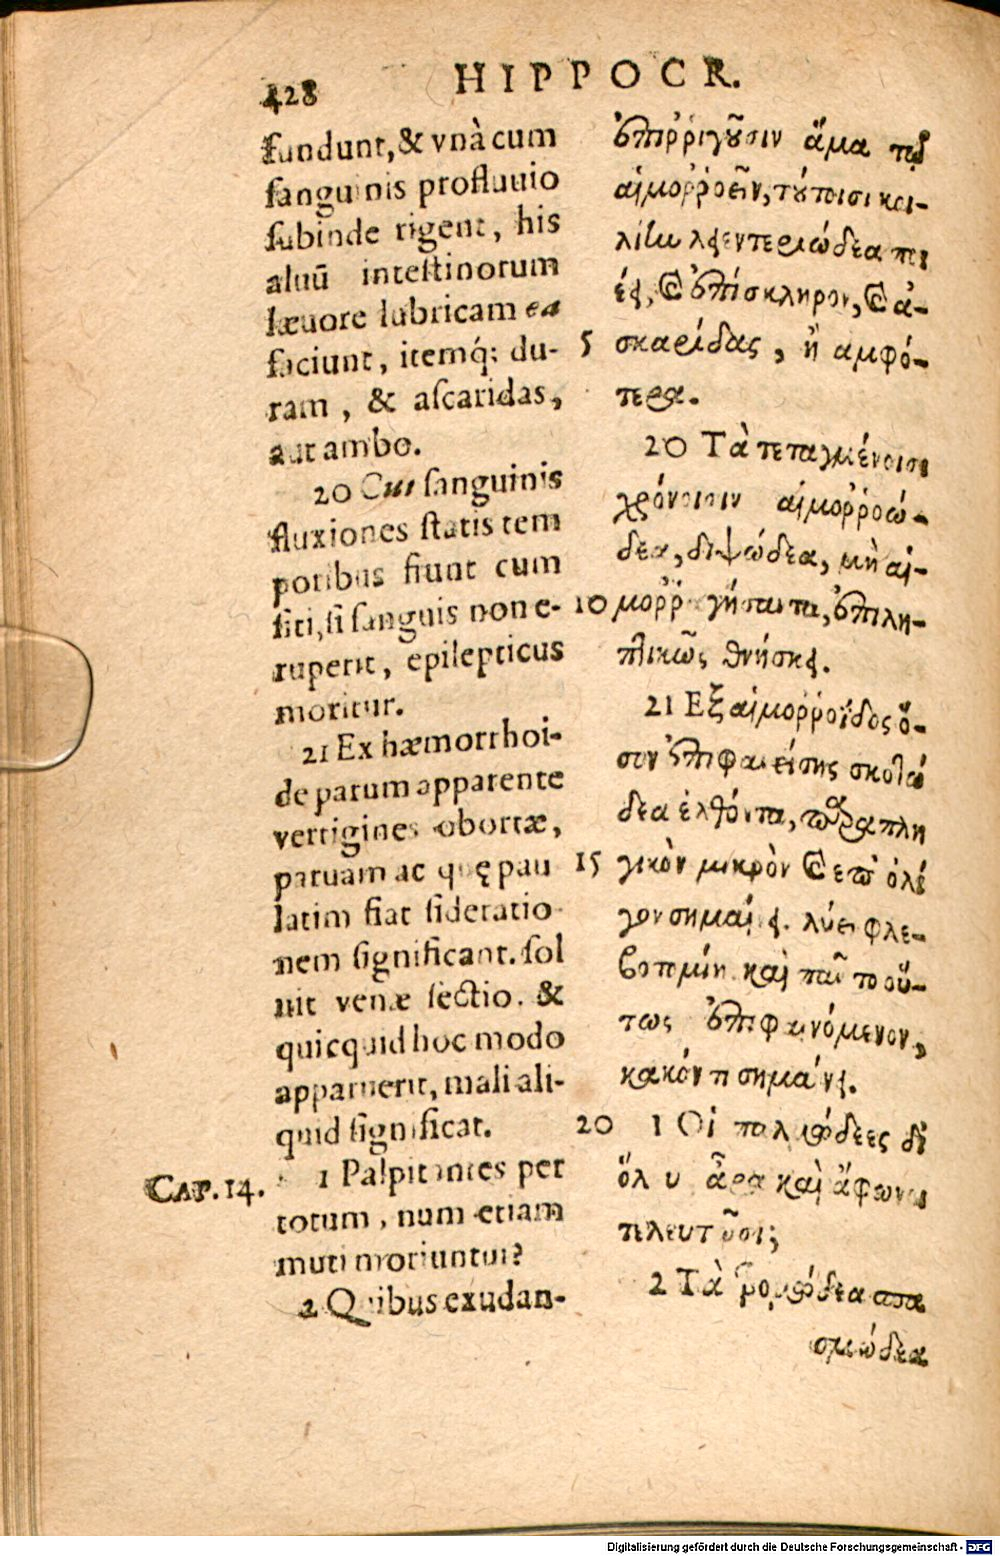 428 HIPPOCR.
fundunt, & vnà cum
sanguinis profluuio
subinde rigent, his
aluū intestinorum
læuore lubricam ea
faciunt, itemq́; du-
ram, & ascaridas,
aut ambo.
20 Cui sanguinis
fluxiones statis tem
poribus fiunt cum
siti, si sanguis non e-
ruperit, epilepticus
moritur.
21 Ex hæmorrhoi-
de parum apparente
vertigines obortæ,
paruam ac quę pau
latim fiat sideratio
nem significant. sol
uit venæ sectio. &
quicquid hoc modo
apparuerit, mali ali-
quid significat.
CAP. 14.
1 Palpitantes per
totum, num etiam
muti moriuntur?
2 Quibus exudan-
ἐπιῤῥιγοῦσιν ἅμα τῷ
αἱμοῤῥοεῖν, τούτοισι κοι-
λίην λειεντεριώδεα ποι
έει, καὶ ἐπίσκληρον, καὶ ἀ-
5 σκαρίδας, ἢ ἀμφό-
τερα.
20 Τὰ τεταγμένοισι
χρόνοισιν αἱμοῤῥοώ-
δεα, διψώδεα, μὴ αἱ-
10 μοῤῥαγήσαντα, ἐπιλη-
πτικῶς θνήσκει.
21 Εξ αἱμοῤῥοΐδος ὅ-
σον ἐπιφανείσης σκοτώ
δεα ἐλθόντα, παραπλη
15 γικὸν μικρὸν καὶ ἐπ' ὀλί
γον σημαίνει. λύει φλε-
βοτομίη. καὶ πᾶν τὸ οὕ-
τως ἐπιφαινόμενον,
κακόν τι σημαίνει.
20 1 Οἱ παλμώδεες δι
ὅλου ἆρα καὶ ἄφωνοι
τελευτῶσι;
2 Τὰ τρομώδεα σπα
σμώδεα
Digitalisierung gefördert durch die Deutsche Forschungsgemeinschaft - DFG